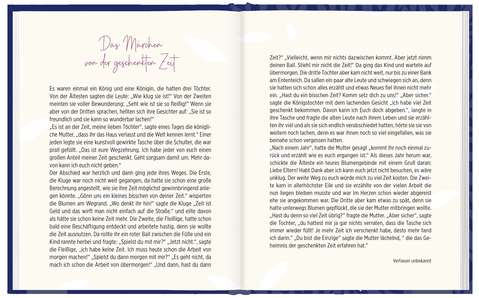 Das Märchen
von der geschenkten Zeit
Es waren einmal ein König und eine Königin, die hatten drei Töchter.
Von der Ältesten sagten die Leute: „Wie klug sie ist!“ Von der Zweiten
meinten sie voller Bewunderung: „Seht wie ist sie so fleißig!“ Wenn sie
aber von der Dritten sprachen, hellten sich ihre Gesichter auf: „Sie ist so
freundlich und sie kann so wunderbar lachen!“
„Es ist an der Zeit, meine lieben Töchter“, sagte eines Tages die königli-
che Mutter, „dass ihr das Haus verlasst und die Welt kennen lernt.“ Einer
jeden legte sie eine kunstvoll gewirkte Tasche über die Schulter, die war
prall gefüllt. „Das ist eure Wegzehrung. Ich habe jeder von euch einen
großen Anteil meiner Zeit geschenkt. Geht sorgsam damit um. Mehr da-
von kann ich euch nicht geben.“
Der Abschied war herzlich und dann ging jede ihres Weges. Die Erste,
die Kluge war noch nicht weit gegangen, da hatte sie schon eine große
Berechnung angestellt, wie sie ihre Zeit möglichst gewinnbringend anle-
gen könnte. „Gönn uns ein kleines bisschen von deiner Zeit.“ wisperten
die Blumen am Wegrand. „Wo denkt ihr hin!“ sagte die Kluge „Zeit ist
Geld und das wirft man nicht einfach auf die Straße.“ und eilte davon
als hätte sie schon keine Zeit mehr. Die Zweite, die Fleißige, hatte schon
bald eine Beschäftigung entdeckt und arbeitete hastig, denn sie wollte
die Zeit ausnutzen. Da rollte ihr ein roter Ball zwischen die Füße und ein
Kind rannte herbei und fragte: „Spielst du mit mir?“ „Jetzt nicht.“, sagte
die Fleißige, „ich habe keine Zeit. Ich muss heute schon die Arbeit von
morgen machen!“ „Spielst du dann morgen mit mir?“ „Es geht nicht, da
mach ich schon die Arbeit von übermorgen!“ „Und dann, hast du dann
Zeit?“ „Vielleicht, wenn mir nichts dazwischen kommt. Aber jetzt nimm
deinen Ball. Stiehl mir nicht die Zeit!“ Da ging das Kind und wartete auf
übermorgen. Die dritte Tochter aber kam nicht weit, nur bis zu einer Bank
am Ententeich. Da saßen ein paar alte Leute und schwiegen sich an, denn
sie hatten sich schon alles erzählt und etwas Neues fiel ihnen nicht mehr
ein. „Hast du ein bisschen Zeit? Komm setz dich zu uns!“ „Aber sicher.“
sagte die Königstochter mit dem lachenden Gesicht „Ich habe viel Zeit
geschenkt bekommen. Davon kann ich Euch doch abgeben.“, langte in
ihre Tasche und fragte die alten Leute nach ihrem Leben und sie erzähl-
ten ihr viel und als sie sich endlich verabschiedet hatten, hörte sie sie von
weitem noch lachen, denn es war ihnen noch so viel eingefallen, was sie
beinahe schon vergessen hatten.
„Nach einem Jahr“, hatte die Mutter gesagt „kommt ihr noch einmal zu-
rück und erzählt wie es euch ergangen ist.“ Als dieses Jahr herum war,
schickte die Älteste ein teures Blumengebinde mit einem Gruß daran:
Liebe Eltern! Habt Dank aber ich kann euch jetzt nicht besuchen, es wäre
unklug. Der weite Weg zu euch würde mich zu viel Zeit kosten. Die Zwei-
te kam in allerhöchster Eile und sie erzählte von der vielen Arbeit die
nun liegen bleiben musste und war im Herzen schon wieder abgereist
ehe sie angekommen war. Die Dritte aber kam etwas zu spät, denn sie
hatte unterwegs Blumen gepflückt, die sie der Mutter mitbringen wollte.
„Hast du denn so viel Zeit übrig?“ fragte die Mutter. „Aber sicher“, sagte
die Tochter, „du hattest mir ja gar nicht verraten, dass die Tasche sich
immer wieder füllt! Je mehr Zeit ich verschenkt habe, desto mehr fand
ich darin.“ „Du bist die Einzige“ sagte die Mutter lächelnd, “ die das Geheim-
nis der geschenkten Zeit erfahren hat.“
Verfasser unbekannt